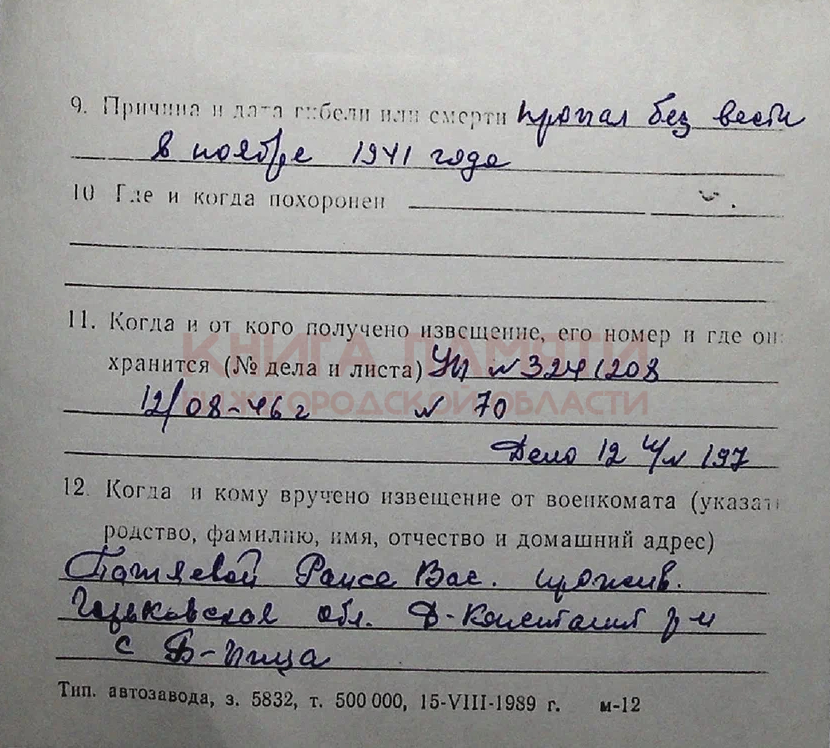 9. Причина и дата гибели или смерти пропал без вести
в ноябре 1941 года
10 Где и когда похоронен
11. Когда и от кого получено извещение, его номер и где он
хранится (№ дела и листа) УП №3241208
12/08-46г № 70
Дело 12 и/№ 197
12. Когда и кому вручено извещение от военкомата (указат
родство, фамилию, имя, отчество и домашний адрес)
Раисе Вас. прожив.
Горьковская обл. Д-Константин р-н
с Б-Пица
Тип. автозавода, з. 5832, т. 500 000, 15-VIII-1989 г. м-12
КНИГА ПАМЯТИ
НИЖЕГОРОДСКОЙ ОБЛАСТИ